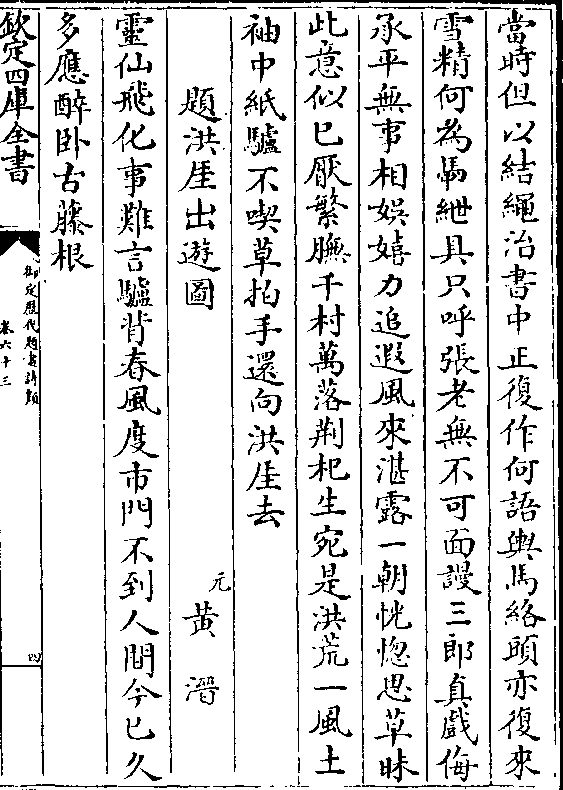 當時但以結繩治書中正復作何語輿馬絡頭亦復來
雪精何為羈紲具只呼張老無不可面謾三郎真戲侮
承平無事相娯嬉力追遐風來湛露一朝恍惚思草昧
此意似已厭繁膴千村萬落荆杞生宛是洪荒一風土
袖中紙驢不喫草拍手還向洪厓去
題洪厓出遊圖
元 黃溍
靈仙飛化事難言驢背春風度市門不到人間今已久
多應醉卧古藤根
欽定四庫全書
御定歷代題畫詩類
卷六十三
四